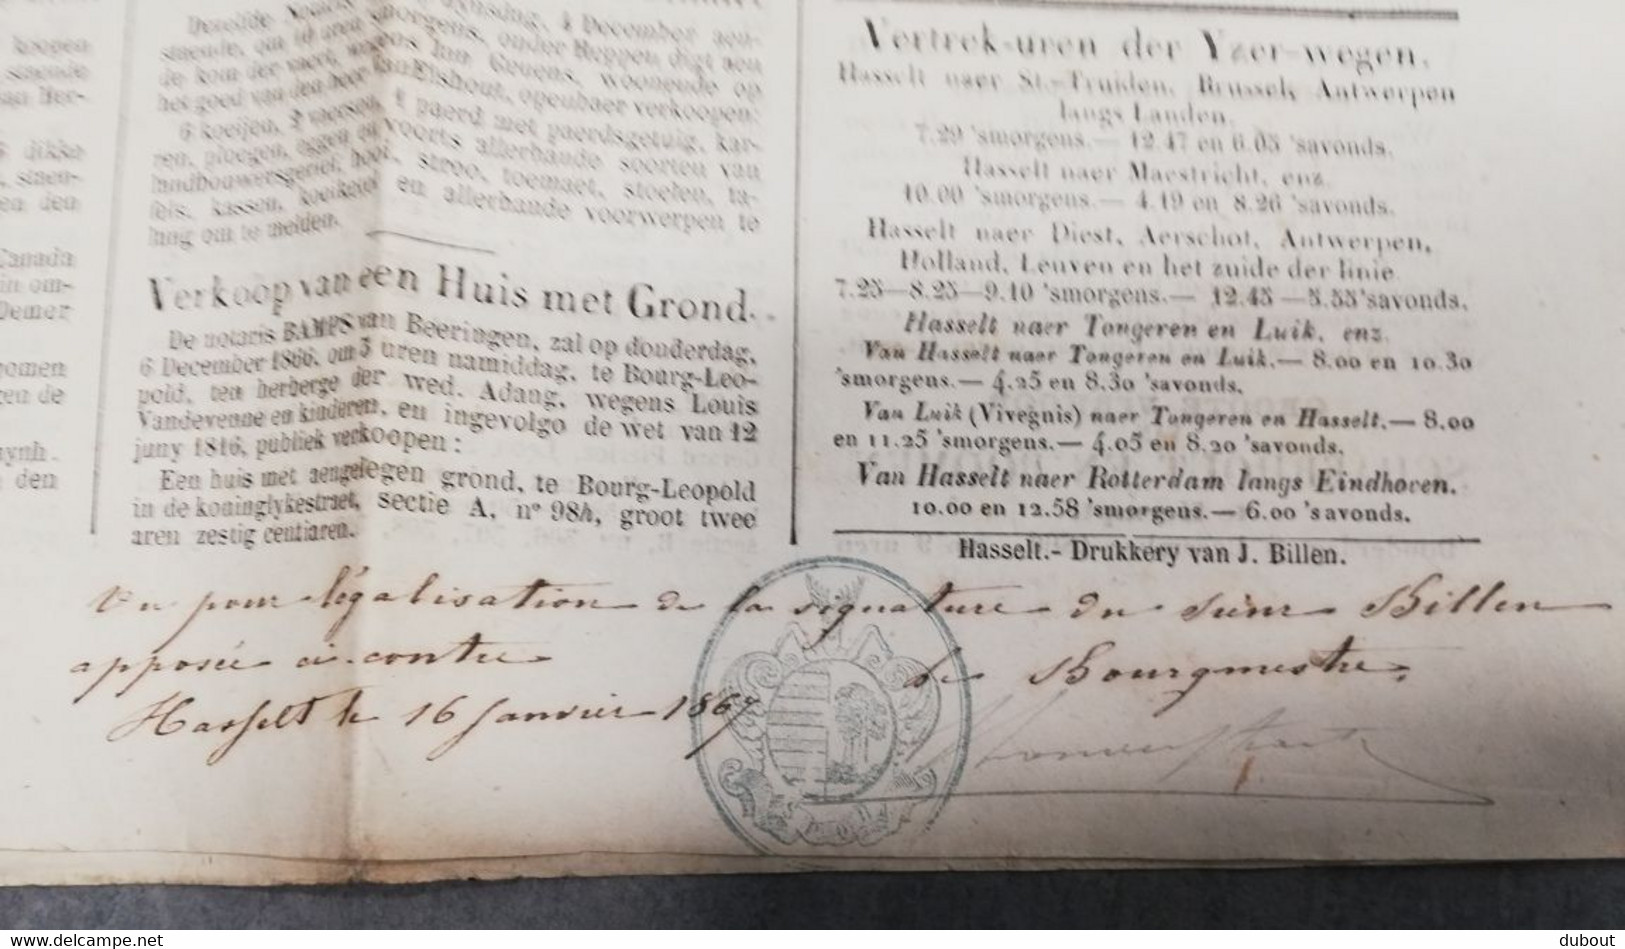 koopen
staende
dikke
den
Canada
in om-
Demer
nomen
gen de
den
dynsdag, 4 December aen-
staende, om 10 uren smorgens, onder Heppen digt aen
de kom der Geuens, woonende op
het goed van den heer Van Elshout, openbaer verkoopen:
6 koeijen, 2 veersen, 1 paerd met paerdsgetuig, kar-
ren, ploegen, eggen en voorts allerhande soorten van
landbouwersgerief, hooi, stroo, toemaet, stoelen, ta-
fels, kassen, koeiketel en allerhande voorwerpen te
lang om te melden.
Verkoop van een Huis met Grond.
De notaris BAMPS van Beeringen, zal op donderdag,
6 December 1866, om 3 uren namiddag, te Bourg-Leo-
pold, ten herberge der wed. Adang, wegens Louis
Vandevenne en kinderen, en ingevolge de wet van 12
juny 1816, publiek verkoopen:
Een huis met aengelegen grond, te Bourg-Leopold
in de koninglykestraet, sectie A, n° 98h, groot twee
aren zestig centiaren.
Vertrek-uren der Yzer-wegen.
Hasselt naer St.-Truiden, Brussel, Antwerpen
langs Landen.
7.29 'smorgens.— 12.47 en 6.05 'savonds.
Hasselt naer Maestricht, enz.
10.00 'smorgens.— 4.19 en 8.26 'savonds.
Hasselt naer Diest, Aerschot, Antwerpen,
Holland, Leuven en het zuide der linie
7.25—8.25—9.10 'smorgens.— 12.45—5.55 'savonds.
Hasselt naer Tongeren en Luik, enz.
Van Hasselt naer Tongeren en Luik.— 8.00 en 10.30
'smorgens.— 4.25 en 8.30 'savonds.
Van Luik (Vivegnis) naer Tongeren en Hasselt.— 8.00
en 11.25 'smorgens.— 4.05 en 8.20 'savonds.
Van Hasselt naer Rotterdam langs Eindhoven.
10.00 en 12.58 'smorgens.— 6.00 'savonds.
Hasselt.- Drukkery van J. Billen.
Vu pour légalisation de la signature du Sieur Billen
apposée ci-contre
Hasselt le 16 Janvier 1867
Le Bourgmestre,
dubout